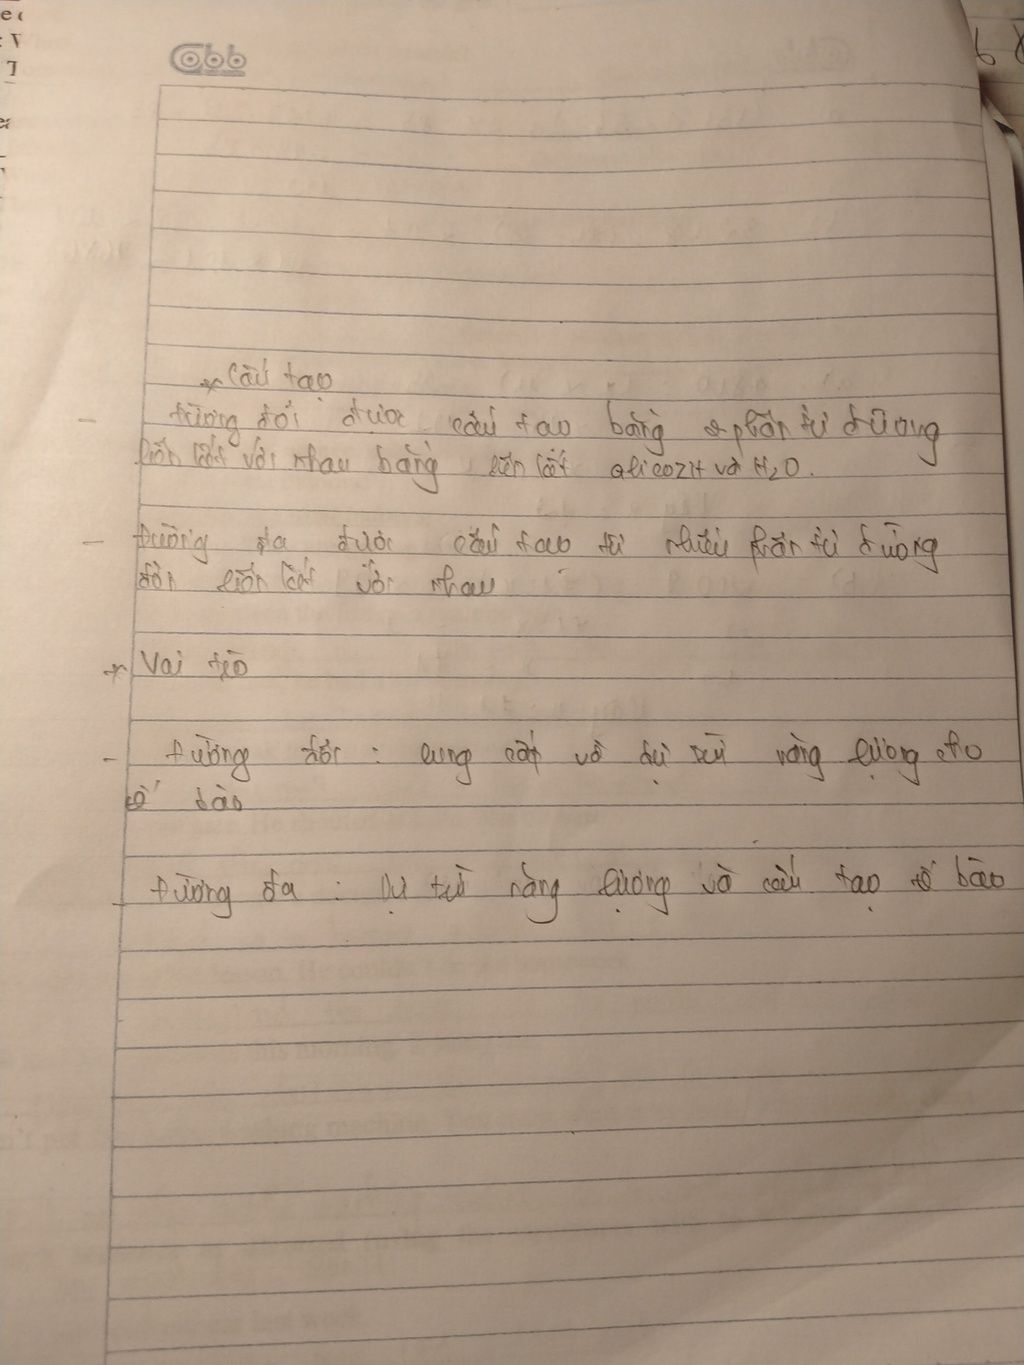 Cobb
* Cấu tạo
- đường đôi được cấu tạo bằng 2 phân tử đường
liên kết với nhau bằng liên kết glicozit và H2O.
- đường đa được cấu tạo từ nhiều phân tử đường
đơn liên kết với nhau
* Vai trò
- đường đôi : cung cấp và dự trữ năng lượng cho
tế bào
đường đa : Dự trữ năng lượng và cấu tạo tế bào